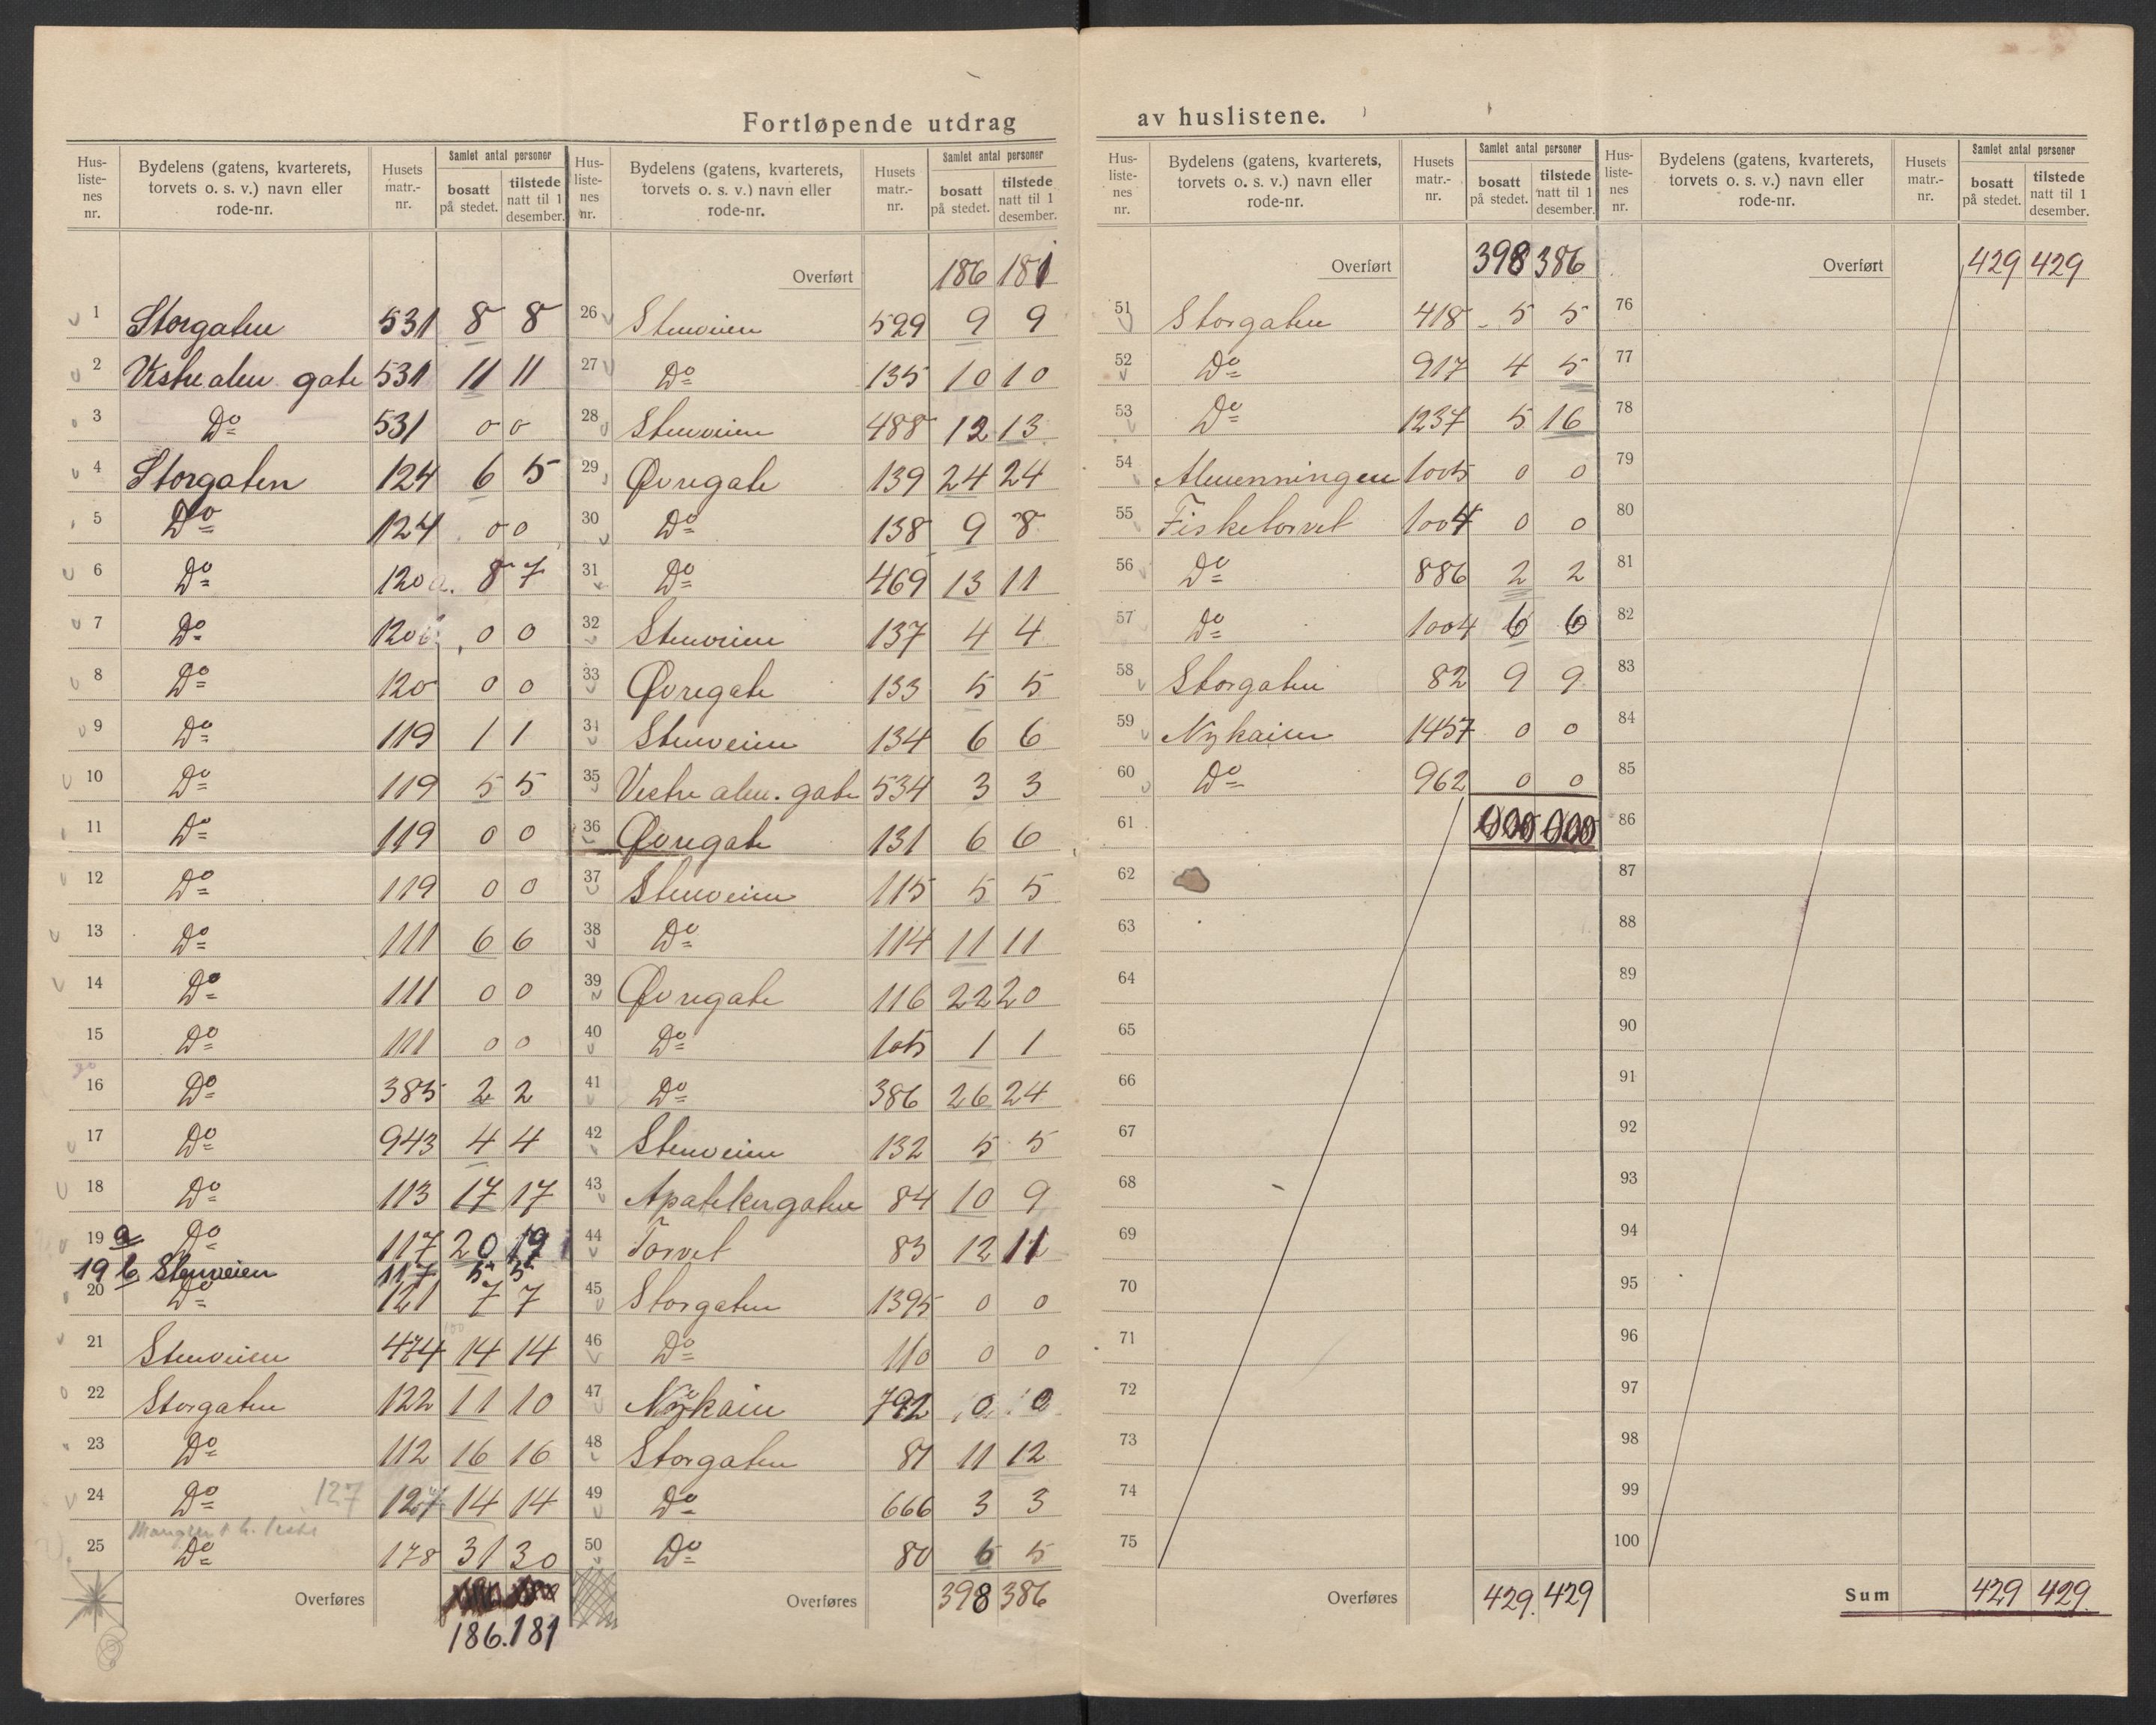 Fortløpende utdrag av huslistene.
Hus-liste-nes nr. | Bydelens (gatens, kvarterets, torvets o. s. v.) navn eller rode-nr. | Husets matr.-nr. | Samlet antal personer | bosatt på stedet. | tilstede natt til 1 desember.
1 Storgaten 531 8 8
2 Vstre alm gate 531 11 11
3 Do 531 0 0
4 Storgaten 124 6 5
5 Do 124 0 0
6 Do 120a. 8 7
7 Do 120b. 0 0
8 Do 120 0 0
9 Do 119 1 1
10 Do 119 5 5
11 Do 119 0 0
12 Do 119 0 0
13 Do 111 6 6
14 Do 111 0 0
15 Do 111 0 0
16 Do 385 2 2
17 Do 943 4 4
18 Do 113 17 17
19 a Do 117 20 19
19 b Stenveien 117 5 5
20 Do 121 7 7
21 Stenveien 474 14 14
22 Storgaten 122 11 10
23 Do 112 16 16
24 Do 127 127 14 14
25 Do 178 31 30
Overføres
186. 181
Hus-liste-nes nr. | Bydelens (gatens, kvarterets, torvets o. s. v.) navn eller rode-nr. | Husets matr.-nr. | Samlet antal personer | bosatt på stedet. | tilstede natt til 1 desember.
Overført 186 181
26 Stenveien 599 9 9
27 Do 135 10 10
28 Stenveien 488 12 13
29 Øvregate 139 24 24
30 Do 138 9 8
31 Do 469 13 11
32 Stenveien 137 4 4
33 Øvregate 133 5 5
34 Stenveien 134 6 6
35 Vestre alm. gate 534 3 3
36 Øvregate 131 6 6
37 Stenveien 115 5 5
38 Do 114 11 11
39 Øvregate 116 22 20
40 Do 105 1 1
41 Do 386 26 24
42 Stenveien 132 5 5
43 Apotekergaten 84 10 9
44 Torvet 83 12 11
45 Storgaten 1395 0 0
46 Do 110 0 0
47 Nykaien 792 0 0
48 Storgaten 81 11 12
49 Do 666 3 3
50 Do 80 6 5
Overføres 398 386
Hus-liste-nes nr. | Bydelens (gatens, kvarterets, torvets o. s. v.) navn eller rode-nr. | Husets matr.-nr. | Samlet antal personer | bosatt på stedet. | tilstede natt til 1 desember.
Overført 398 386
51 Storgaten 418 5 5
52 Do 917 4 5
53 Do 1237 5 16
54 Almenningen 1005 0 0
55 Fisketorvet 1004 0 0
56 Do 886 2 2
57 Do 1004 6 6
58 Storgaten 82 9 9
59 Nykaien 1457 0 0
60 Do 962 0 0
61
62
63
64
65
66
67
68
69
70
71
72
73
74
75
Overføres 429. 429
Hus-liste-nes nr. | Bydelens (gatens, kvarterets, torvets o. s. v.) navn eller rode-nr. | Husets matr.-nr. | Samlet antal personer | bosatt på stedet. | tilstede natt til 1 desember.
Overført 429 429
76
77
78
79
80
81
82
83
84
85
86
87
88
89
90
91
92
93
94
95
96
97
98
99
100
Sum 429 429.